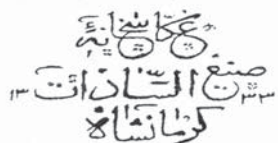 عکاسخانهٔ
صنیع السّادات
۱۳ ۳۳
کرمانشاه